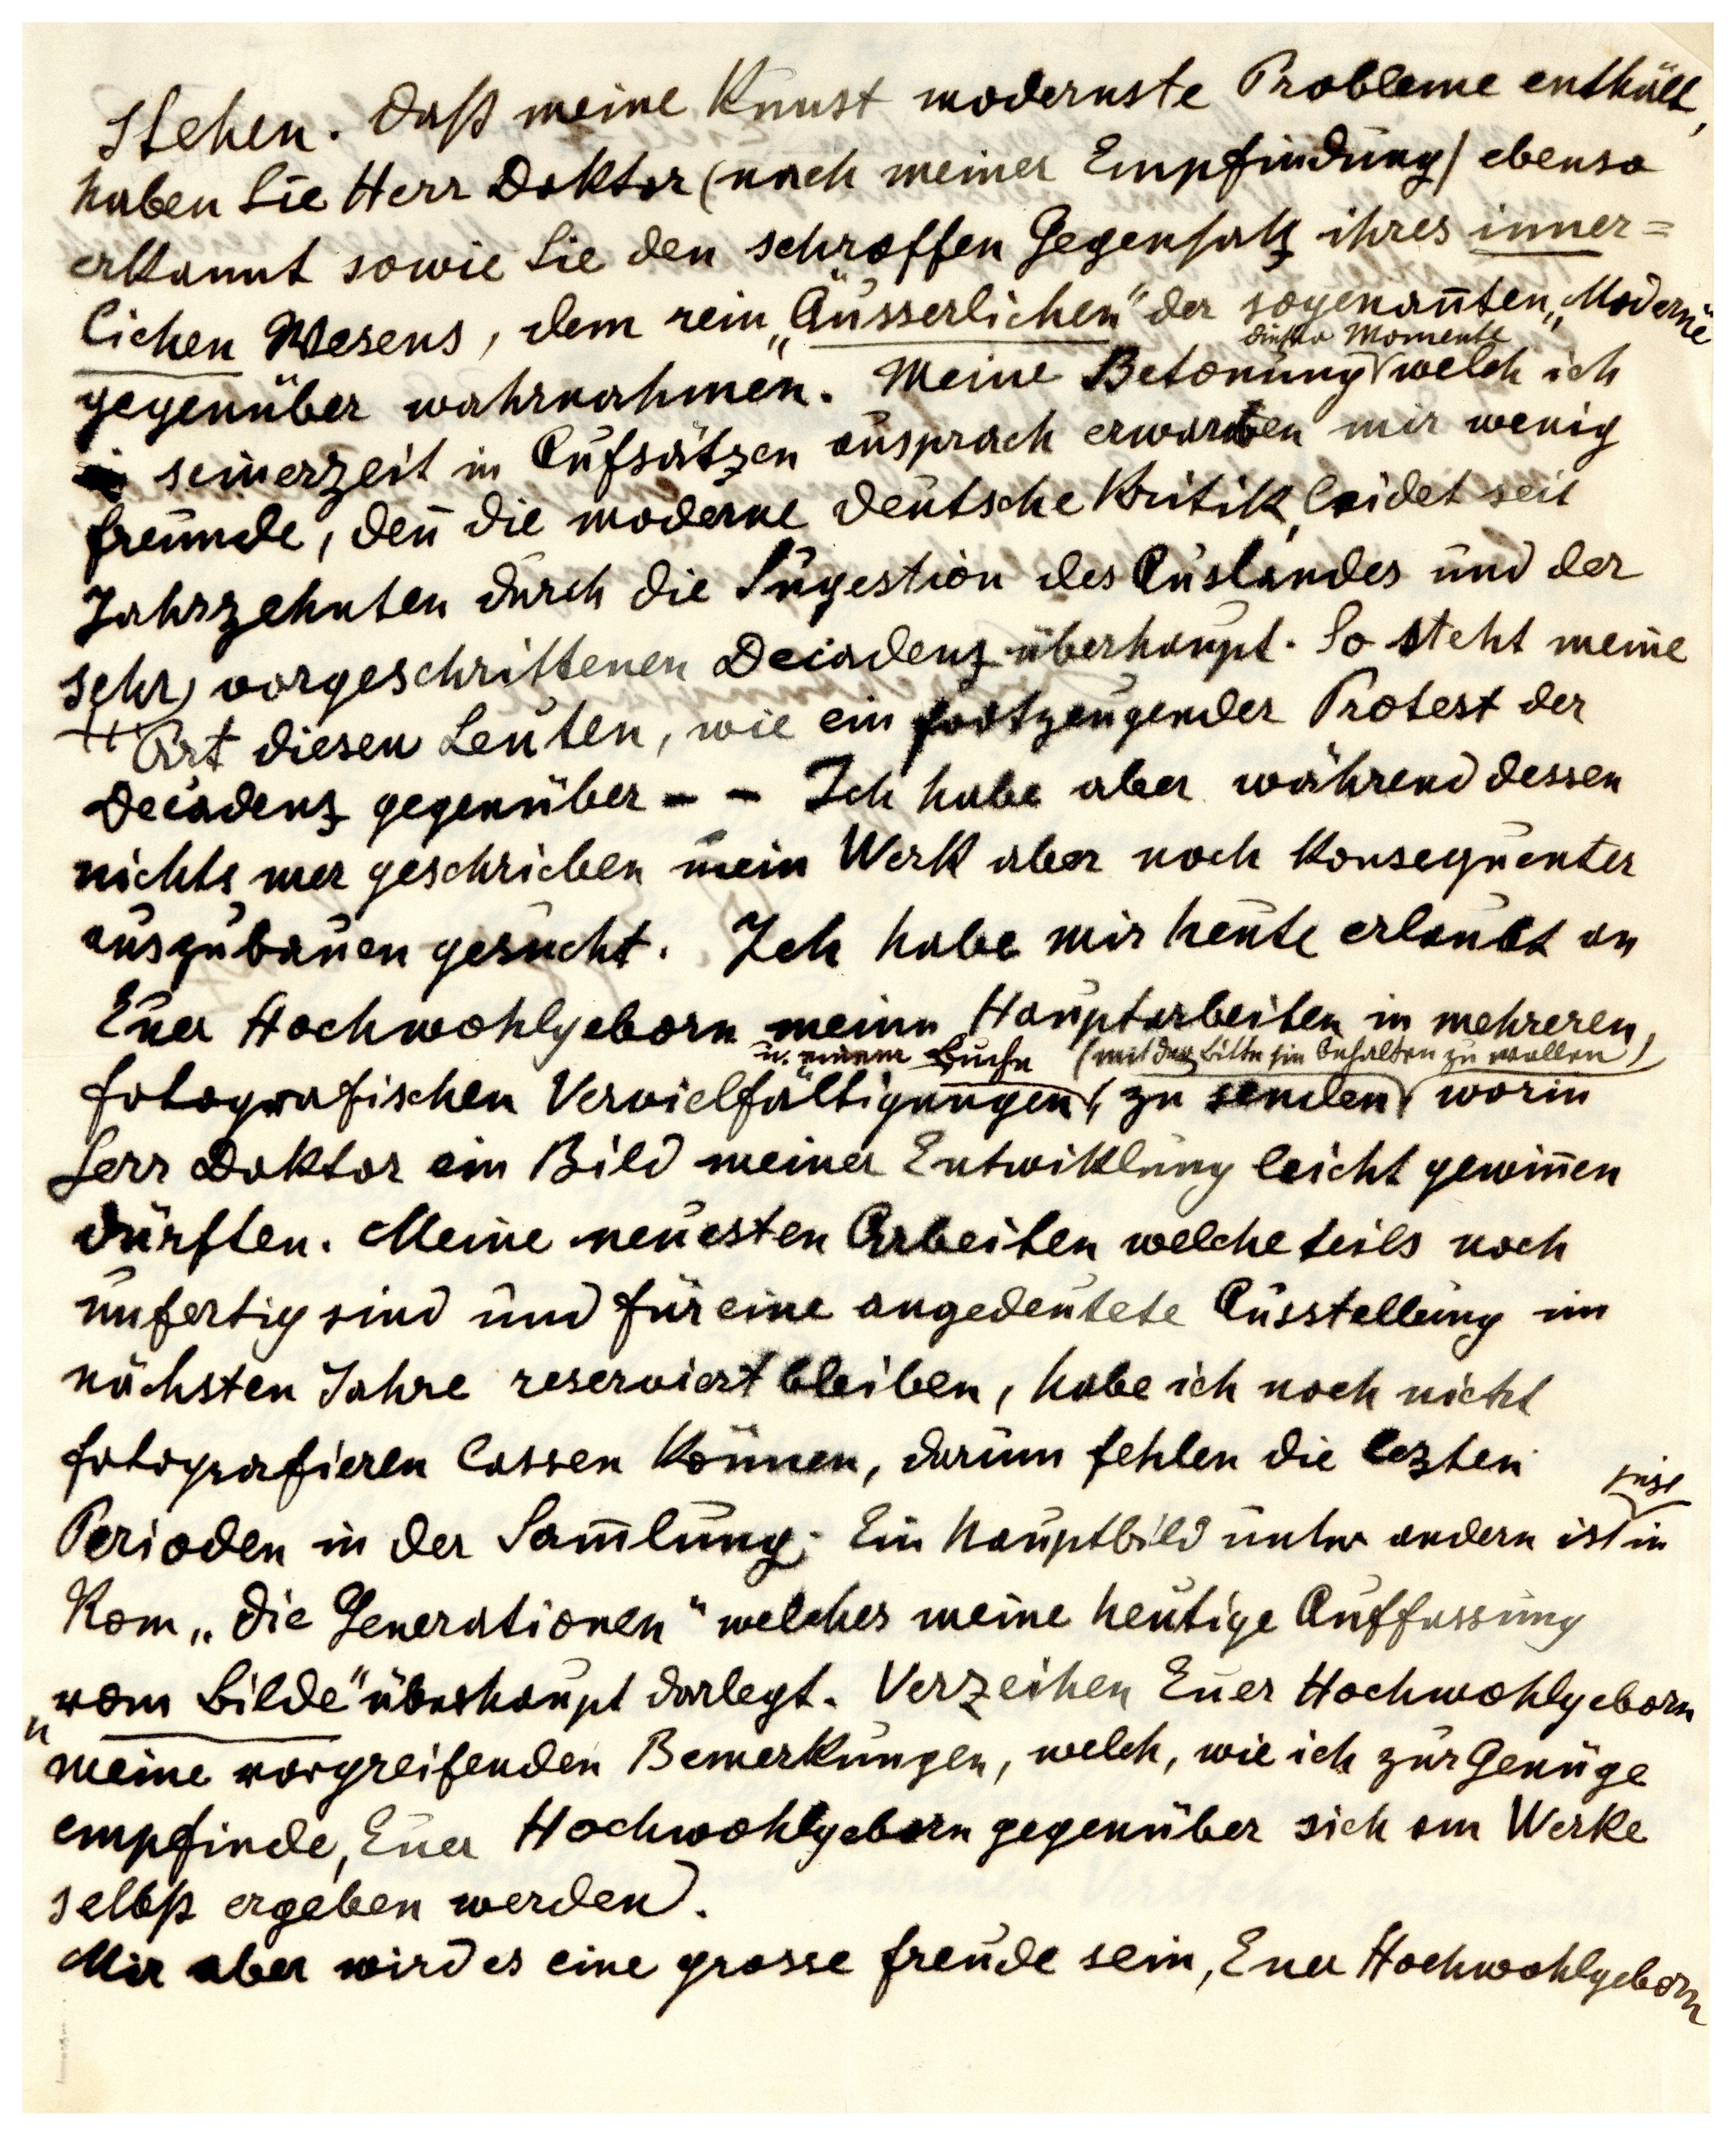 stehen. Daß meine Kunst modernste Probleme enthält,
haben Sie Herr Doktor (nach meiner Empfindung) ebenso
erkannt sowie Sie den schroffen Gegensatz ihres inner=
lichen Wesens, dem rein „Äusserlichen" der sogenan̄ten „Moderne"
dieser Momente
gegenüber wahrnahmen. Meine Betonung welch ich
seinerzeit in Aufsätzen aussprach erwarben mir wenig
freunde, den̄ die moderne deutsche Kritik, leidet seit
Jahrzehnten durch die Sugestion des Auslandes und der
sehr vorgeschrittenen Decadenz überhaupt. So steht meine
Art diesen Leuten, wie ein fortzeugender Protest der
Decadenz gegenüber - - Ich habe aber während dessen
nichts mer geschrieben mein Werk aber noch konsequenter
auszubauen gesucht. Ich habe mir heute erlaubt an
Euer Hochwohlgeborn meine Hauptarbeiten in mehreren
u. einem Buche (mit der Bitte sie behalten zu wollen)
fotografischen Vervielfältigungen, zu senden worin
Herr Doktor ein Bild meiner Entwiklung leicht gewin̄en
dürften. Meine neuesten Arbeiten welche teils noch
unfertig sind und für eine angedeutete Ausstellung im
nächsten Jahre reserviert bleiben, habe ich noch nicht
fotografieren lassen können, darum fehlen die lezten
Perioden in der Sam̄lung. Ein Hauptbild unter andern ist in
Rom „Die Generationen" welches meine heutige Auffassung
„vom Bilde" überhaupt darlegt. Verzeihen Euer Hochwohlgeborn
meine vorgreifenden Bemerkungen, welch, wie ich zur Genüge
empfinde, Euer Hochwohlgeborn gegenüber sich am Werke
selbst ergeben werden.
Mir aber wird es eine grosse freude sein, Euer Hochwohlgeborn